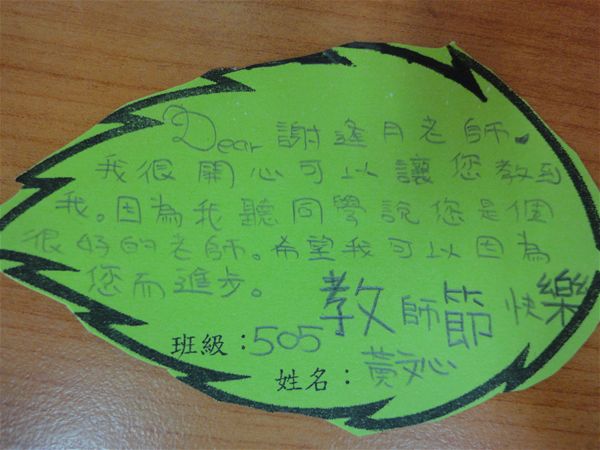 Dear 謝逢月老師，
我很開心可以讓您教到
我。因為我聽同學說您是個
很好的老師。希望我可以因為
您而進步。
教師節快樂
班級：505
姓名：黃文心